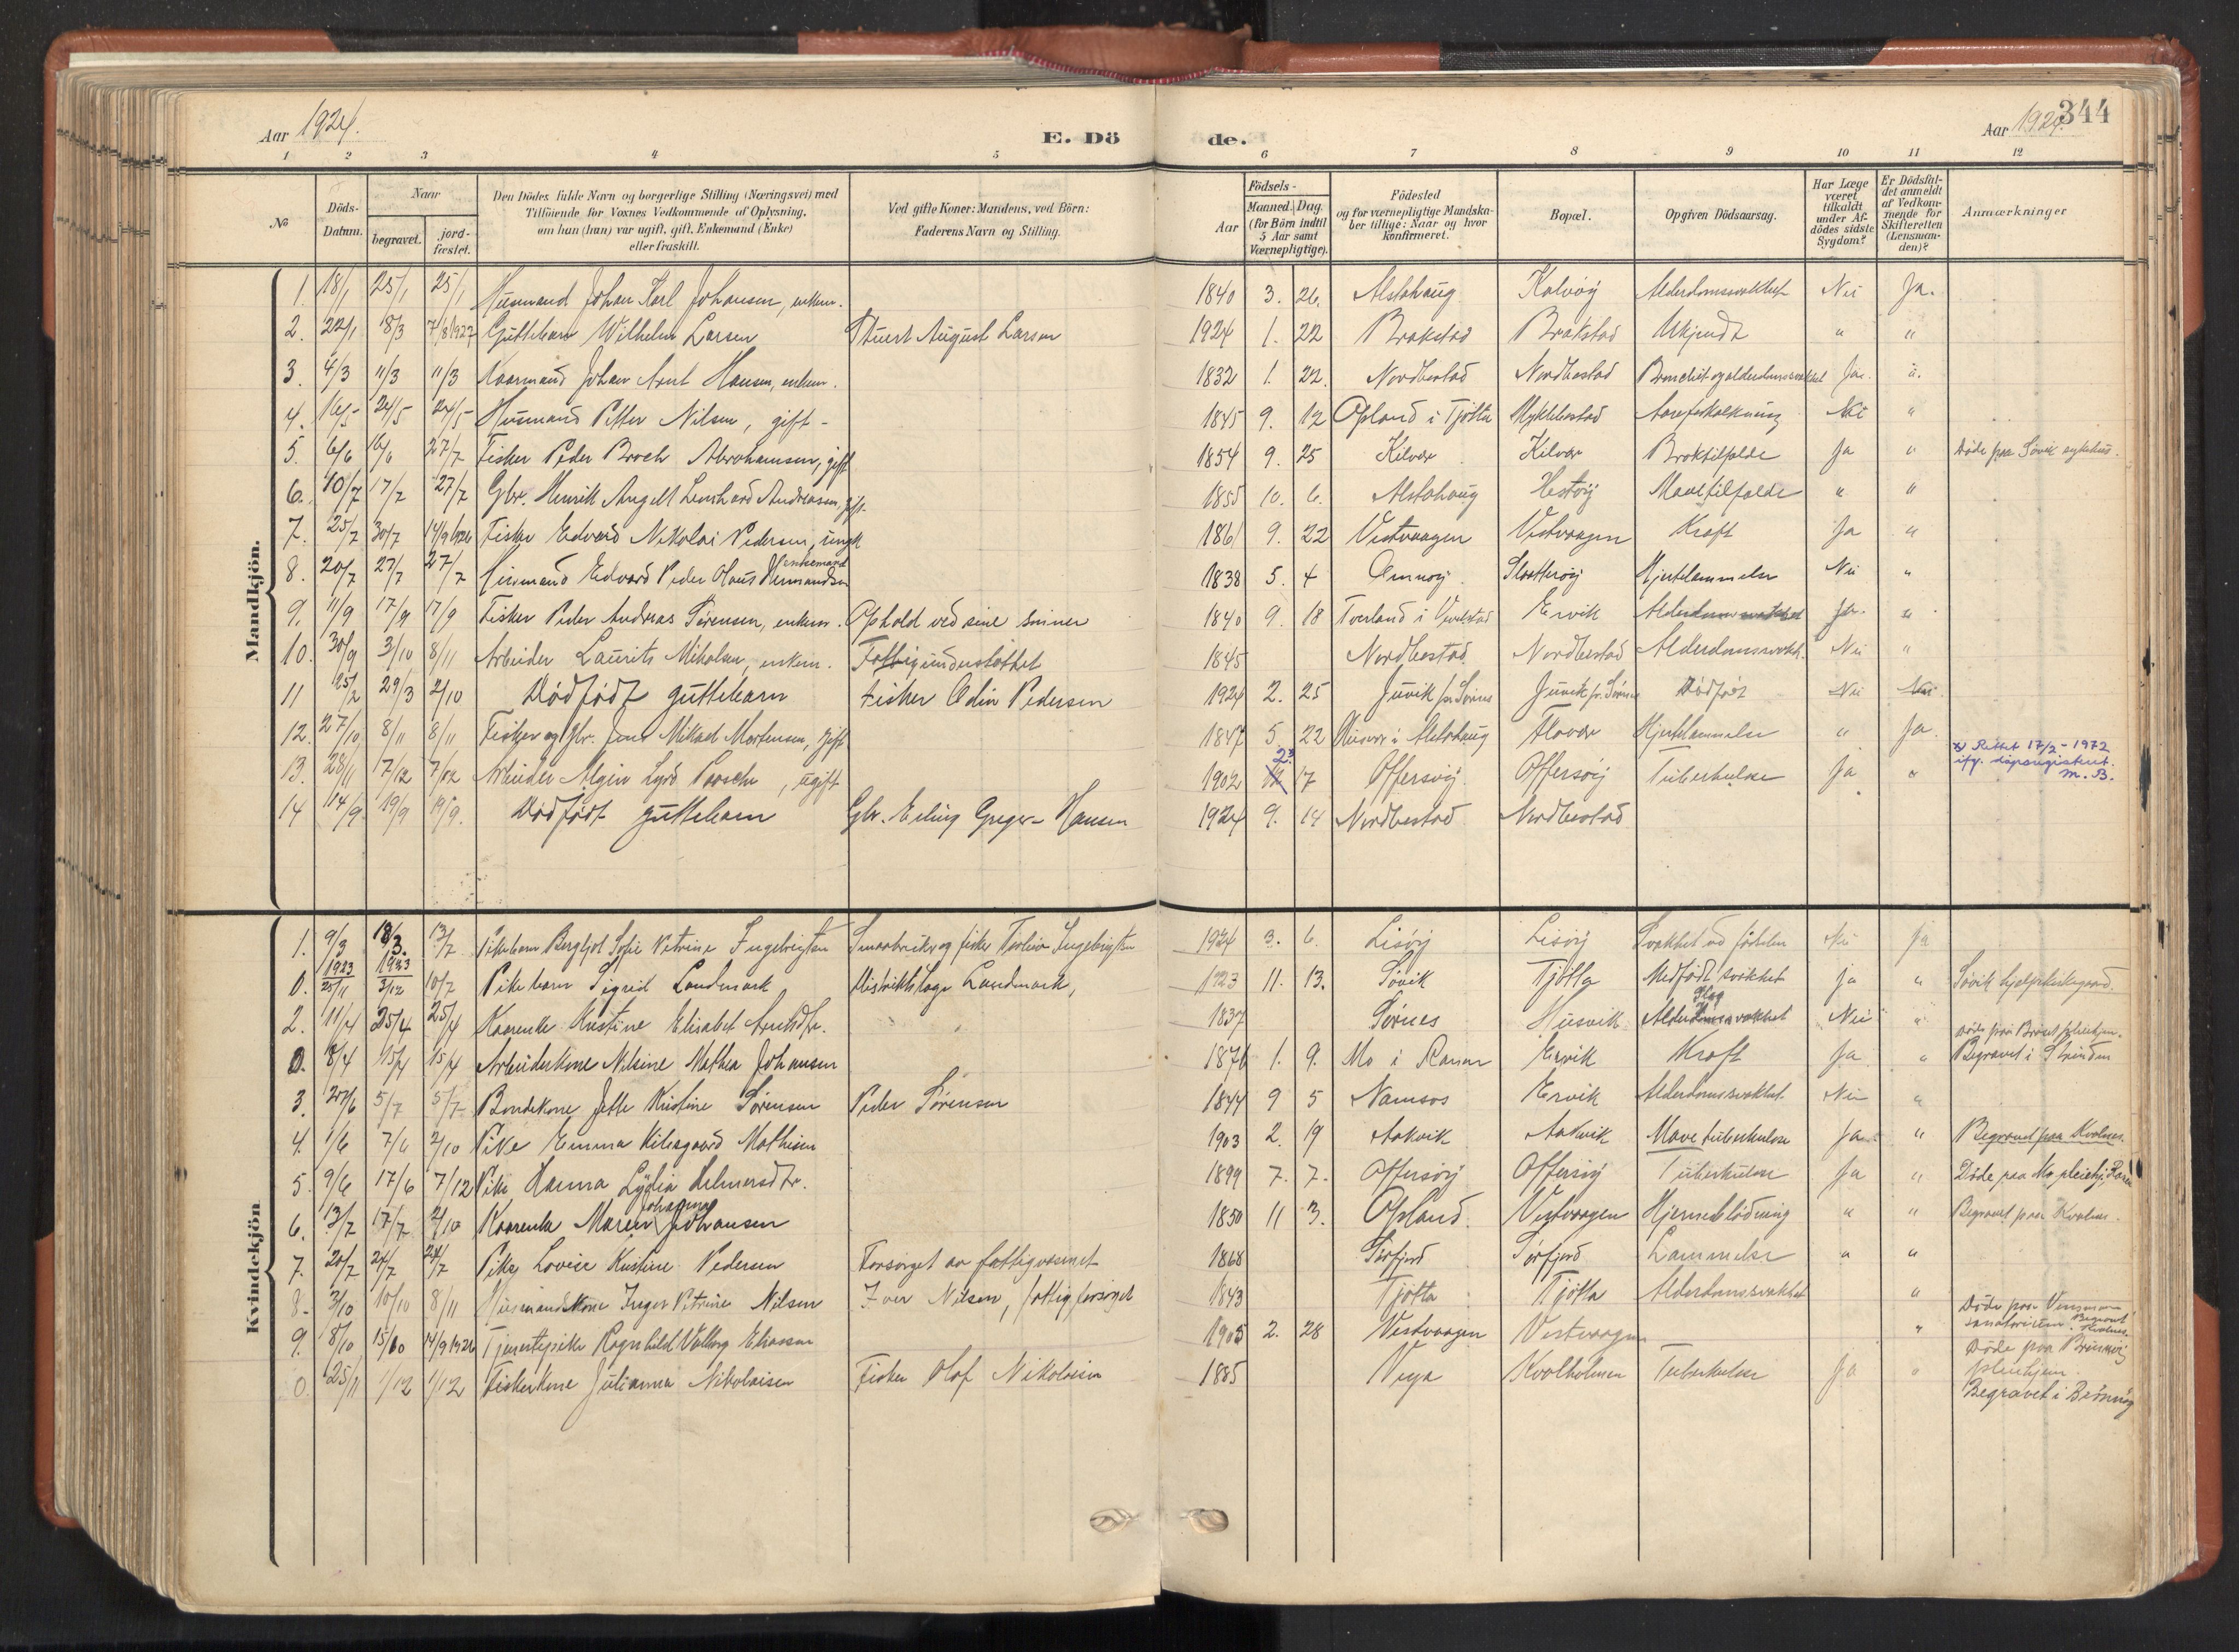 344
Aar 1924.
E. Dö
de.
Aar 1924.
1 2 3 4 5 6 7 8 9 10 11 12
No
Döds-
Datum.
Naar
begravet.
jord-
fæstet.
Den Dödes fulde Navn og borgerlige Stilling (Næringsvei) med
Tilföiende for Voxnes Vedkommende af Oplysning,
om han (hun) var ugift, gift, Enkemand (Enke)
eller fraskilt.
Ved gifte Koner: Mandens, ved Börn:
Faderens Navn og Stilling.
Födsels-
Aar
Maaned. Dag.
(for Börn indtil
5 Aar samt
Værnepligtige).
Födested
og for værnepligtige Mandska-
ber tillige: Naar og hvor
Konfirmeret.
Bopæl.
Opgiven Dödsaarsag.
Har Læge
været
tilkaldt
under Af-
dödes sidste
Sygdom?
Er Dödsfal-
det anmeldt
af Vedkom-
mende for
Skifteretten
(Lensman-
den)?
Anmærkninger
Mandkjön.
1. 18/1 25/1 25/1 Husmand Johan Karl Johansen, enkem. 1840 3. 26. Alstahaug Kalvöy Alderdomssvakhet Nei Ja.
2. 22/1 8/3 7/8 1927 Guttebarn Wilhelm Larsen August Larsen 1924 1. 22 Brakstad Brakstad Ukjendt " "
3. 4/3 11/3 11/3 Kaarmand Johan Arnt Hansen, enkem. 1832 1. 22. Nordbostad Nordbostad Bronchit og alderdomssvakhet Ja. "
4. 16/5 24/5 24/5 Husmand Petter Nilsen, gift - 1845 9. 12 Opland i Tjötta Myklebostad Aareforkalkning Nei "
5. 6/6 27/7 Fisker Peder Broch Abrahamsen, gift 1854 9. 25 Kilvær Kilvær Broktilfælde Ja " Döde paa Sövik sykehus.
6. 10/7 17/7 27/7 Gbr. Henrik Angell Lenhard Andreasen, gift. 1855 10. 6. Alstahaug Hestöy Mavetilfælde " "
7. 25/7 30/7 14/9 1926 Fisker Edvard Nikolai Pedersen, ungk 1861 9. 22 Vestvaagen Vestvaagen Kræft Ja "
8. 20/7 27/7 27/7 Husmand Edvard Peder Olaus Hermandsen enkemand 1838 5. 4 Slotteröy Hjertelammelse Nei "
9. 11/9 17/9 17/9 Fisker Peder Andreas Sörensen, enkem. Ophold ved sine sönner 1840 9. 18 Tverland i Vevelstad Ervik Alderdomssvakhet Ja. "
10. 30/9 3/10 8/11 Arbeider Laurits Mikalsen, enkem. Fattigunderstöttet 1845 Nordbostad Nordbostad Alderdomssvakh. Nei "
11 25/2 29/3 2/10 Dödfödt guttebarn Fisker Odin Pedersen 1924 2. 25 Juvik pr. Sörnes Juvik pr. Sörnes Dödfödt Nei Nei.
12. 27/10 8/11 8/11 Fisker og Gbr. Jens Mikael Mortensen, gift 1847 5. 22 Husvær i Alstahaug Flovær Hjertelammelse " Ja.
13. 28/11 17/12 7/12 Arbeider Algin Lyrd Paasche, ugift 1902 2. 17 Offersöy Offersöy Tuberkulose Ja " x) Rettet 17/2-1972
ifg. dåpsregisteret.
M. B.
14 14/9 19/9 19/9. Dödfödt guttebarn Gbr. Erling Greger Hansen 1924 9. 14 Nordbostad Nordbostad
Kvindekjön
1. 9/3 18/3. 13/7 Pikebarn Bergljot Sofie Petrine Ingebrigtsen Smaabruker og fisker Ingebrigtsen 1924 3. 6. Lisöy Lisöy Svakhet ved födselen Nei Ja
0. 1923 25/11 1923 3/12 10/7 Pikebarn Sigrid Landmark Distriktslæge Landmark, 1923 11. 13. Sövik Tjötta Medfödt svakhet Ja " Sövik hjelpekirkegaard.
2. 11/4 25/4 25/4 Kaarenke Kristine Elisabet Arntsdtr. 1837 Sörnes Husvik Slag Alderdomssvakhet Nei "
0. 8/4 15/4 15/4 Arbeiderkone Nilsine Mathea Johansen 1876 1. 9. Mo i Ranen Ervik Kræft Ja " Begravet i Strinden
3. 27/6 5/7 5/7 Bondekone Jette Kristine Sörensen Peder Sörensen 1844 9 5 Namsos Ervik Alderdomssvakhet Nei "
4. 1/6 7/6 2/10 Pike Emma Kildegaard Mathisen 1903 2. 19 Aakvik Aakvik Mavetuberkulose Ja " Begravet paa Kvalnes.
5. 9/6 17/6 7/12 Pike Hanna Lydia Helmersdtr. 1899 7. 7. Offersöy Offersöy Tuberkulose Ja " Döde paa Mo pleiehj, Ranen
6. 13/7 17/7 2/10 Kaarenke Maren Johanna Johansen 1850 11 3. Opland. Vestvaagen Hjerneblödning " " Begravet paa Kvalnes.
7. 20/7 24/7 24/7 Pike Lovise Kristine Pedersen Forsörget av fattigvæsenet 1868 Sörfjord Sörfjord Lammelse " "
8. 3/10 10/10 8/11 Husmandskone Inger Petrine Nilsen Iver Nilsen, fattigforsörget 1843 Tjötta Tjötta Alderdomssvakhet "
9. 8/10 15/10 14/9 1926 Tjenestepike Ragnhild Valborg Eliassen 1905 2. 28 Vestvaagen Vestvaagen " Döde paa
sanatorium. Begravet Kvalnes.
0. 25/11 1/12 1/12 Fiskerkone Julianna Nikolaisen Fisker Olaf Nikolaisen 1885 Vega Kvalholmen Tuberkulose Ja " Döde paa Brönnöy
pleiehjem.
Begravet i Brönnöy